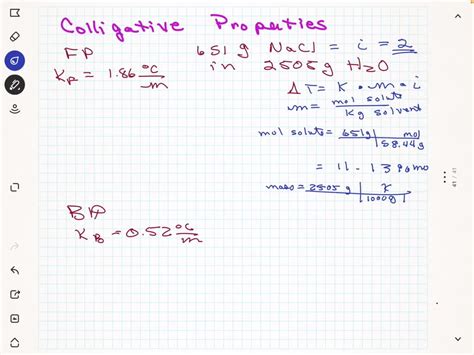 Colligative Properties
FP
KF = 1.86 °C/m
651 g NaCl = i = 2
in 2505 g H2O
ΔT = K • m • i
m = mol solute / Kg solvent
mol solute = 651g | mol / 58.44g
= 11.1396 mo
mass = 2505 g | K / 1000g
BP
KB = 0.52 °C/m
41 / 41